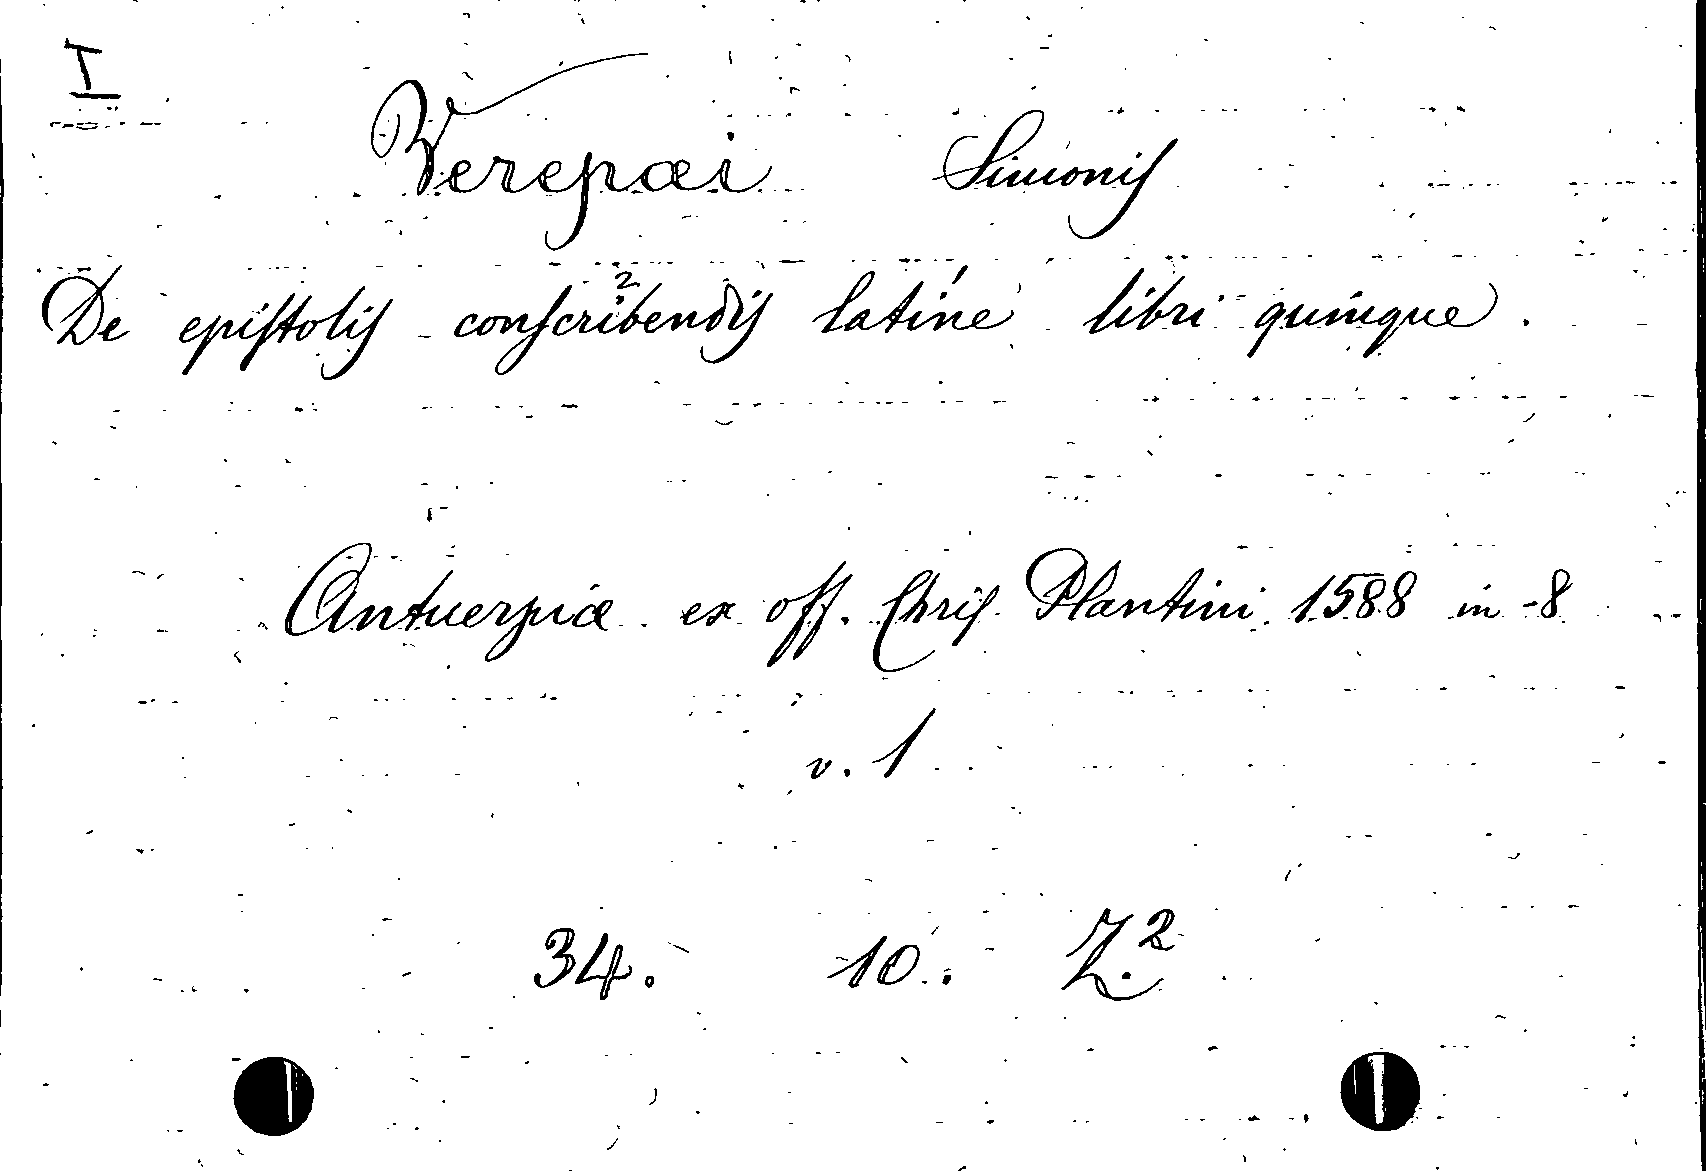 I
Verepæi Simonis
De epistolis conscribendis latine libri quinque.
Antuerpiæ ex off. Chris. Plantini 1588 in-8
v. 1
34. 10. Z.²